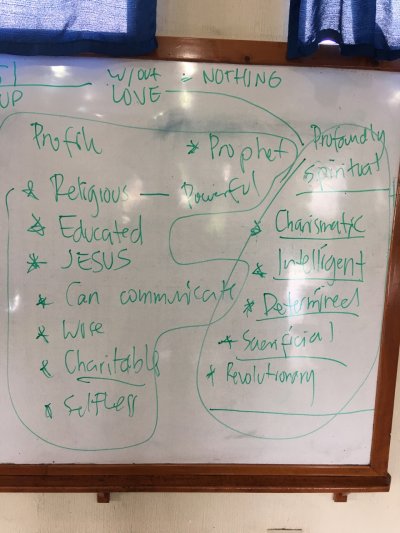 UP
W/out = NOTHING
LOVE
Profile
* Religious — Powerful
* Educated
* JESUS
* Can communicate
* Wise
* Charitable
* Selfless
* Prophet
Profoundly
Spiritual
* Charismatic
* Intelligent
* Determined
* Sacrificial
* Revolutionary